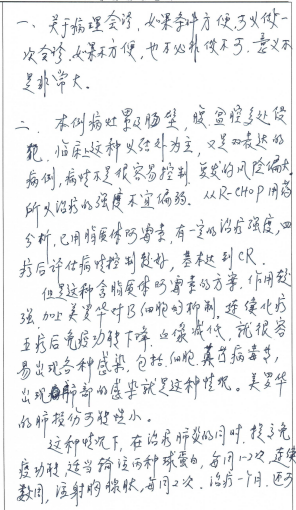 一、关于病理会诊，如果条件方便，可以做一
次会诊，如果不方便，也不必非做不可，意义不
是非常大。
二、本例病灶累及肠壁，腹盆腔多处侵
犯，临床上这种以结外为主，又是双表达的
病例，病情不是很容易控制，复发的风险偏大，
所以治疗的强度不宜偏弱。从R-CHOP用药
分析，已用脂质体阿霉素，有一定的治疗强度，四
疗后评估病情控制较好，基本达到CR。
但是这种含脂质体阿霉素的方案，作用较
强，加上美罗华对B细胞的抑制，连续化疗
五疗后免疫功能下降，白蛋减低，就很容
易出现各种感染，包括细胞、真菌病毒等，
出现肺部的感染就是这种情况。美罗华
的肺损伤可能性小。
这种情况下，在治疗肺炎的同时，提高免
疫功能，适当输注丙种球蛋白，每周1-2次，连续
数周，注射胸腺肽，每周2次，治疗一个月，还可